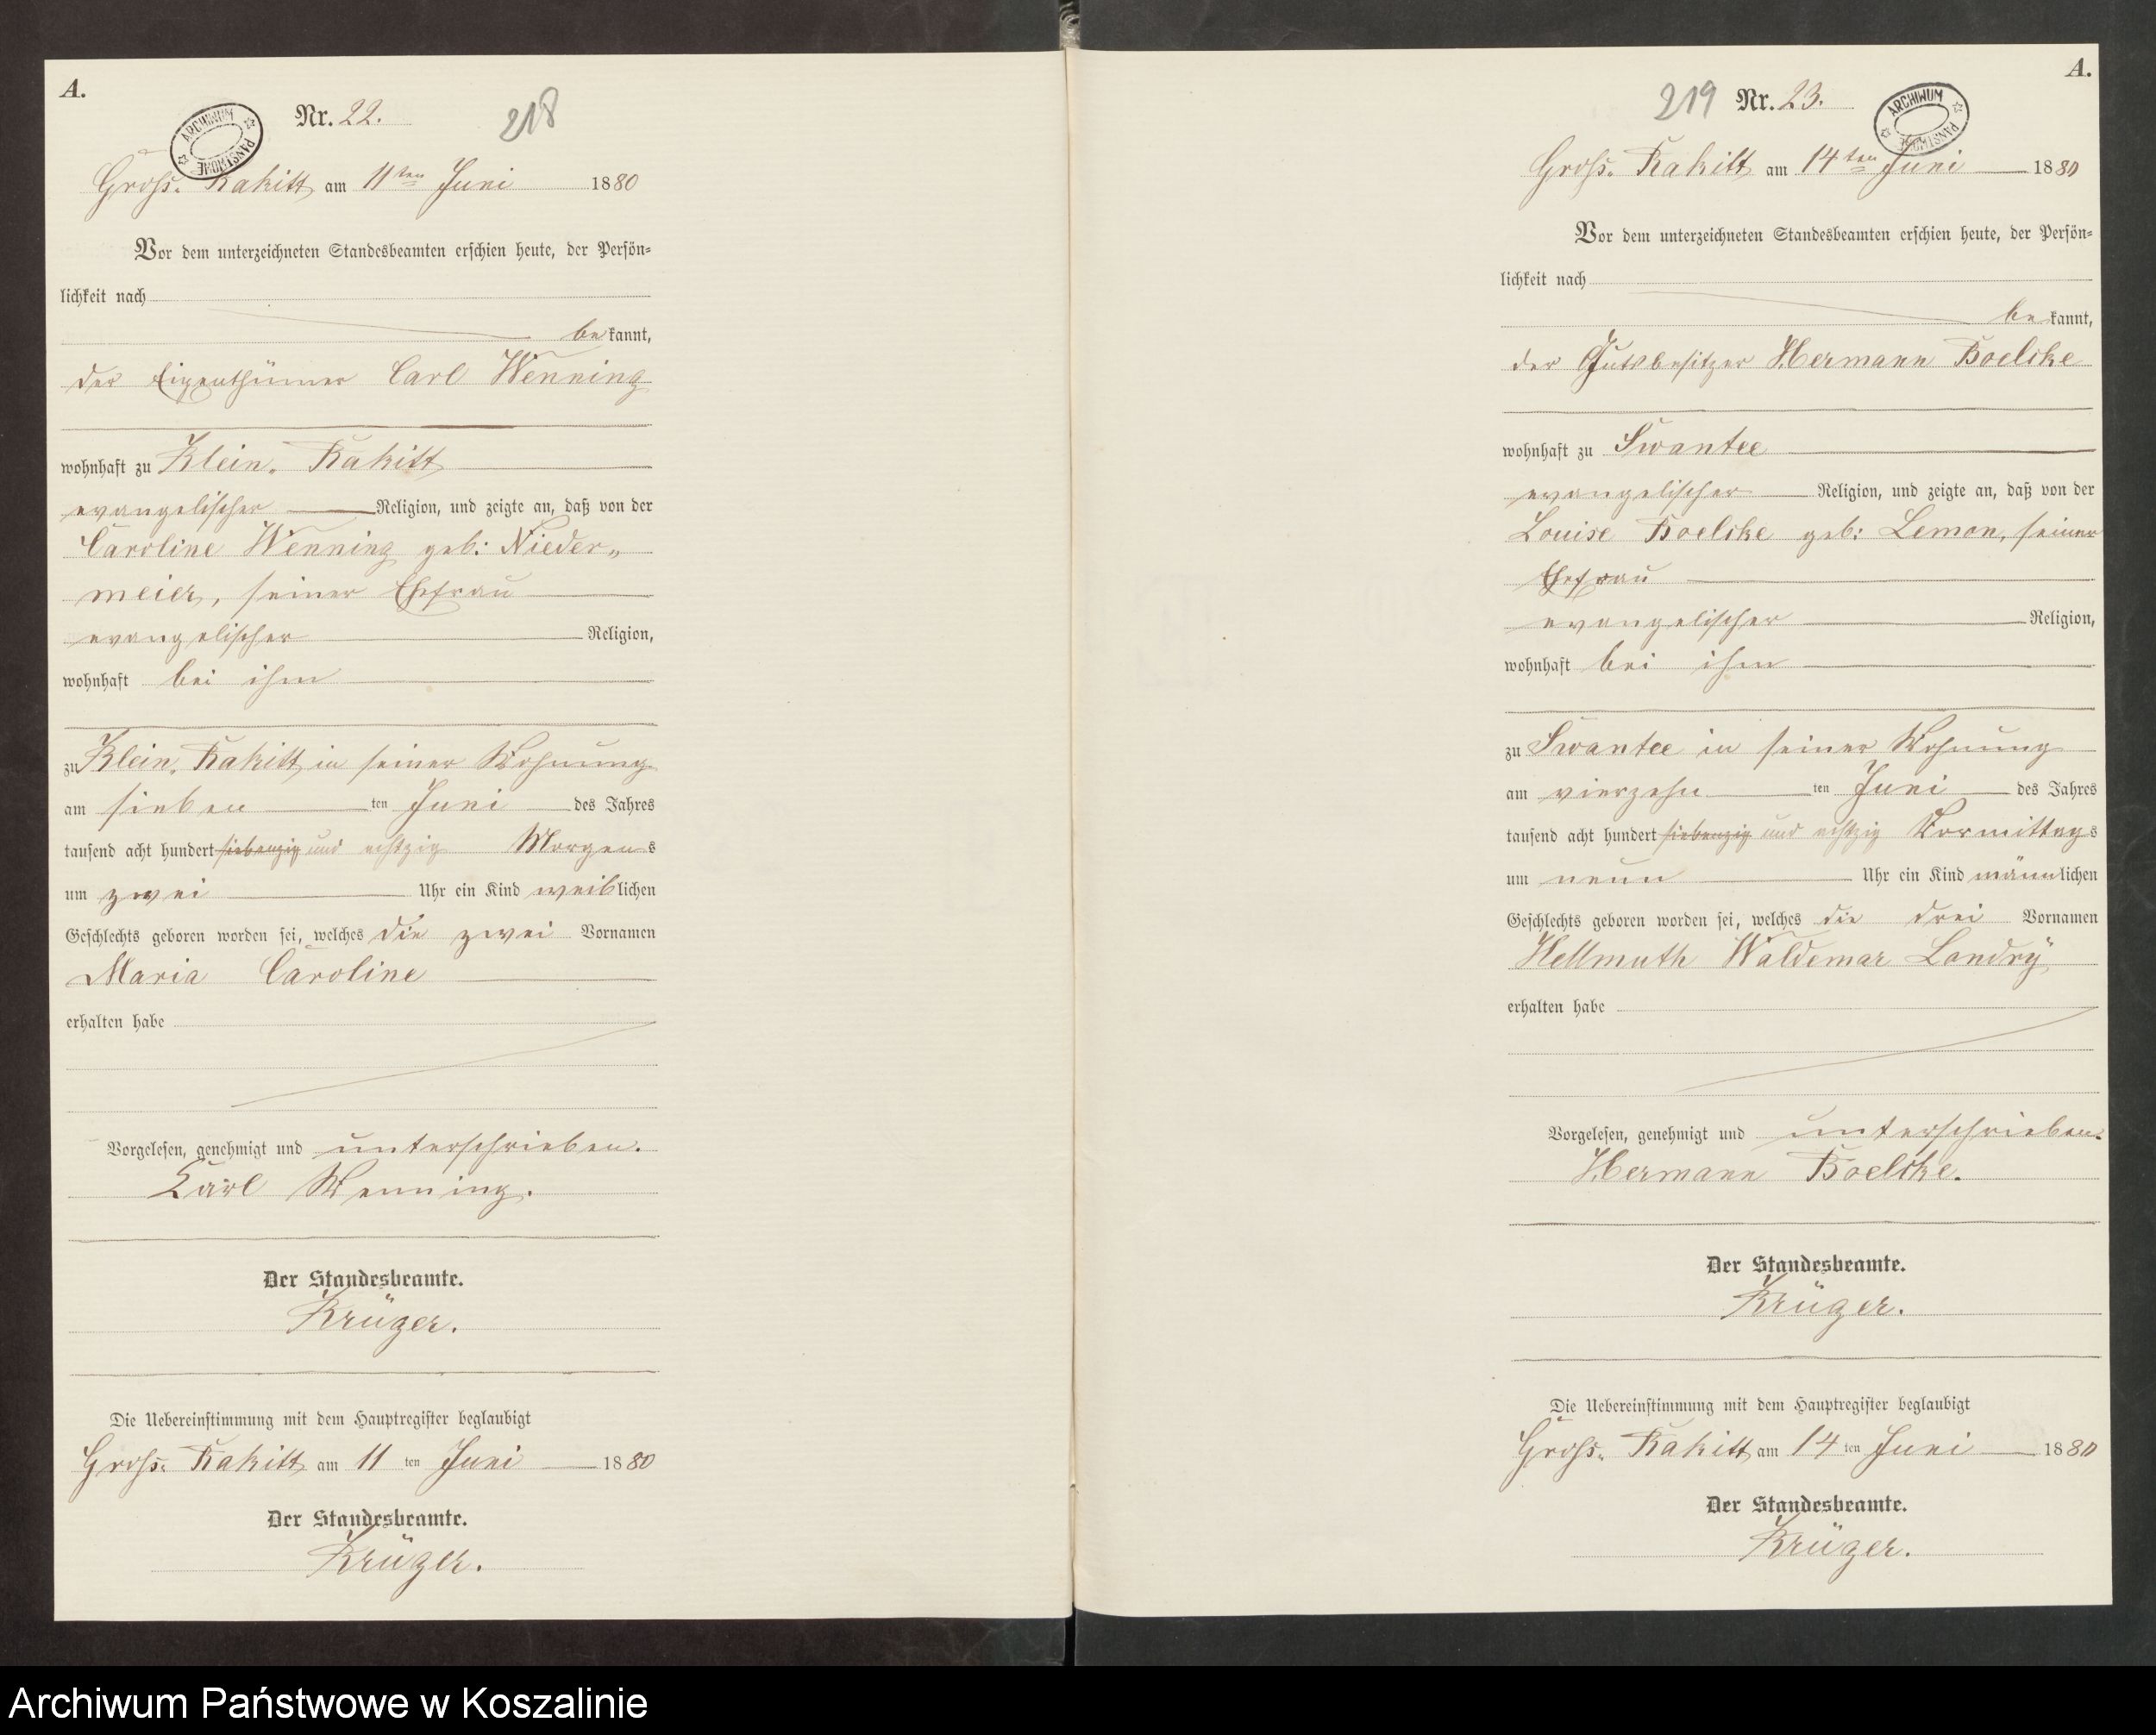 A.
ARCHIWUM PAŃSTWOWE
Nr. 22.
218
Groß. Rakitt am 11ten Juni 1880
Vor dem unterzeichneten Standesbeamten erschien heute, der Persön-
lichkeit nach
bekannt,
der Eigenthümer Carl Wenning
wohnhaft zu Klein. Rakitt
evangelischer Religion, und zeigte an, daß von der
Caroline Wenning geb: Nieder„
meier, seiner Ehefrau
evangelischer Religion,
wohnhaft bei ihm
zu Klein. Rakitt in seiner Wohnung
am sieben ten Juni des Jahres
tausend acht hundert siebenzig und achtzig Morgens
um zwei Uhr ein Kind weiblichen
Geschlechts geboren worden sei, welches die zwei Vornamen
Maria Caroline
erhalten habe
Vorgelesen, genehmigt und unterschrieben.
Carl Wenning.
Der Standesbeamte.
Krüger.
Die Uebereinstimmung mit dem Hauptregister beglaubigt
Groß. Rakitt am 11 ten Juni 1880
Der Standesbeamte.
Krüger.
A.
219
Nr. 23.
ARCHIWUM PAŃSTWOWE
Groß. Rakitt am 14ten Juni 1880
Vor dem unterzeichneten Standesbeamten erschien heute, der Persön-
lichkeit nach
bekannt,
der Gutsbesitzer Hermann Boelcke
wohnhaft zu Swantee
evangelischer Religion, und zeigte an, daß von der
Louise Boelcke geb: Lemon, seiner
Ehefrau
evangelischer Religion,
wohnhaft bei ihm
zu Swantee in seiner Wohnung
am vierzehn ten Juni des Jahres
tausend acht hundert siebenzig und achtzig Vormittags
um neun Uhr ein Kind männlichen
Geschlechts geboren worden sei, welches die drei Vornamen
Hellmuth Waldemar Landrÿ
erhalten habe
Vorgelesen, genehmigt und unterschrieben.
Hermann Boelcke.
Der Standesbeamte.
Krüger.
Die Uebereinstimmung mit dem Hauptregister beglaubigt
Groß. Rakitt am 14 ten Juni 1880
Der Standesbeamte.
Krüger.
Archiwum Państwowe w Koszalinie